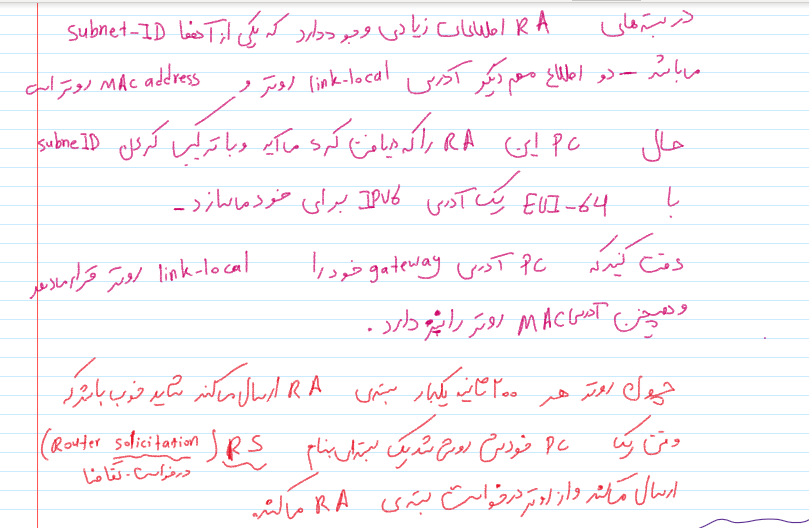 در بسته های RA اطلاعات زیادی وجود دارد که یکی از آنها subnet-ID
میباشد - دو اطلاع مهم دیگر آدرس link-local روتر و MAC address روتر است
حال PC این RA را که دریافت کرد می آید و با ترکیب کردن subneID
با EUI-64 یک آدرس IPV6 برای خود میسازد -
دقت کنید که PC آدرس gateway خود را link-local روتر قرار میدهد
و همچنین آدرس MAC روتر را نیز دارد .
چون روتر هر ۲۰۰ ثانیه یکبار بسته ی RA ارسال میکند شاید خوب باشد که
وقتی یک PC خودش روشن شد یک بسته ای بنام RS (Router solicitation)
درخواست - تقاضا
ارسال میکند و از روتر درخواست بسته ی RA میکند.